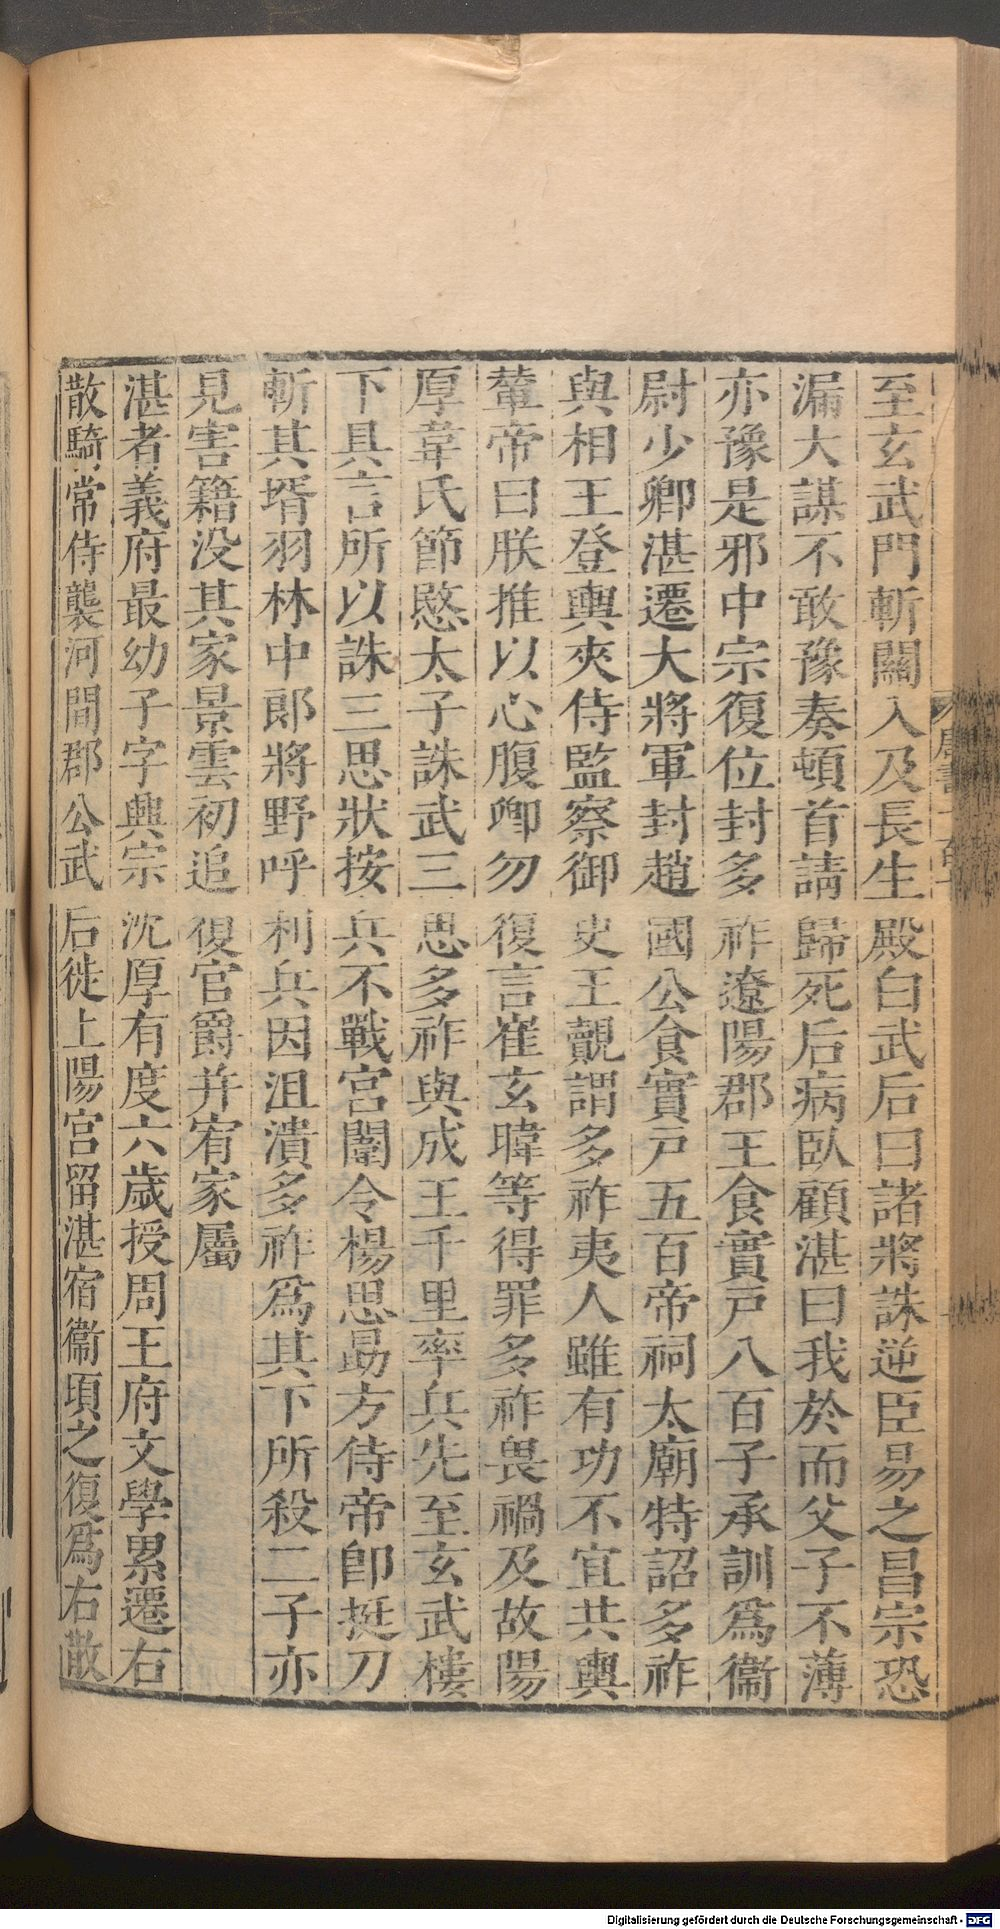 至玄武門斬關入及長生殿白武后曰諸將誅逆臣易之昌宗恐
漏大謀不敢豫奏頓首請歸死后病臥顧湛曰我於而父子不薄
亦豫是邪中宗復位封多祚遼陽郡王食實戸八百子承訓爲衞
尉少卿湛遷大將軍封趙國公食實戸五百帝祠太廟特詔多祚
與相王登輿夾侍監察御史王覿謂多祚夷人雖有功不宜共輿
輦帝曰朕推以心腹卿勿復言崔玄暐等得罪多祚畏禍及故陽
厚韋氏節愍太子誅武三思多祚與成王千里率兵先至玄武樓
下具言所以誅三思狀按兵不戰宮闈令楊思勗方侍帝卽挺刀
斬其壻羽林中郎將野呼利兵因沮潰多祚爲其下所殺二子亦
見害籍没其家景雲初追復官爵并宥家屬
湛者義府最幼子字興宗沈厚有度六歲授周王府文學累遷右
散騎常侍襲河間郡公武后徙上陽宮留湛宿衞頃之復爲右散
Digitalisierung gefördert durch die Deutsche Forschungsgemeinschaft - DFG